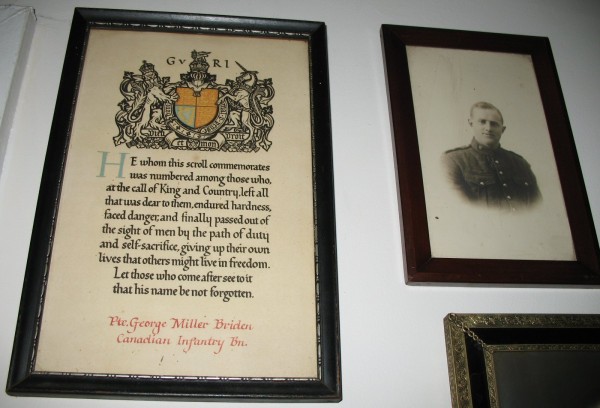 GVRI
Dieu et mon Droit
HE whom this scroll commemorates
was numbered among those who,
at the call of King and Country, left all
that was dear to them, endured hardness,
faced danger, and finally passed out of
the sight of men by the path of duty
and self-sacrifice, giving up their own
lives that others might live in freedom.
Let those who come after see to it
that his name be not forgotten.
Pte. George Miller Briden
Canadian Infantry Bn.